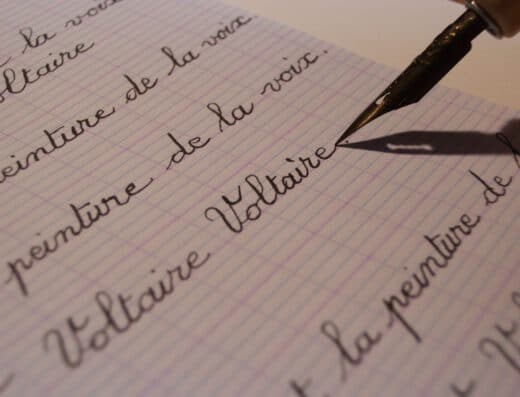 la voix
Voltaire
peinture de la voix
peinture de la voix.
Voltaire Voltaire
la peinture de